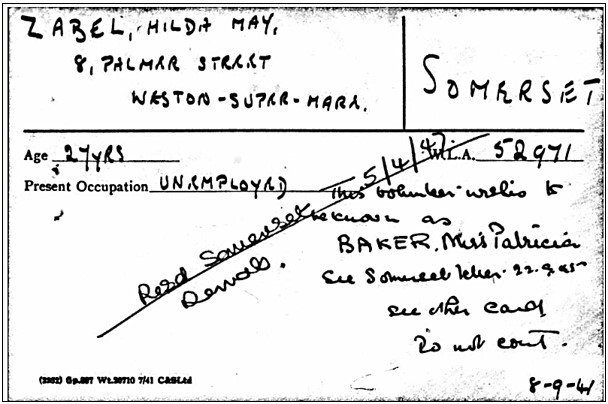 ZABEL, HILDA MAY,
8, PALMER STREET
WESTON-SUPER-MARE.
SOMERSET
Age 27 YRS
W.L.A. 52971
Present Occupation UNEMPLOYED
5/4/47
This volunteer wishes to
be known as
BAKER. Miss Patricia
See Somerset letter. 22.9.45
see other card
Do not cont.
Somerset
8-9-41
(2302) Gp.697 Wt.20710 7/41 C&SLtd